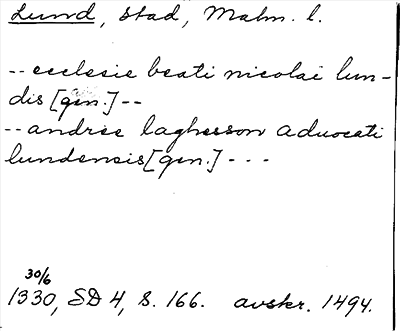 Lund, stad, Malm. l.
-- ecclesie beati nicolai lun-
dis [gen.] --
-- andree laghesson aduocati
lundensis [gen.] - - -
30/6
1330, SD 4, S. 166. avskr. 1494.